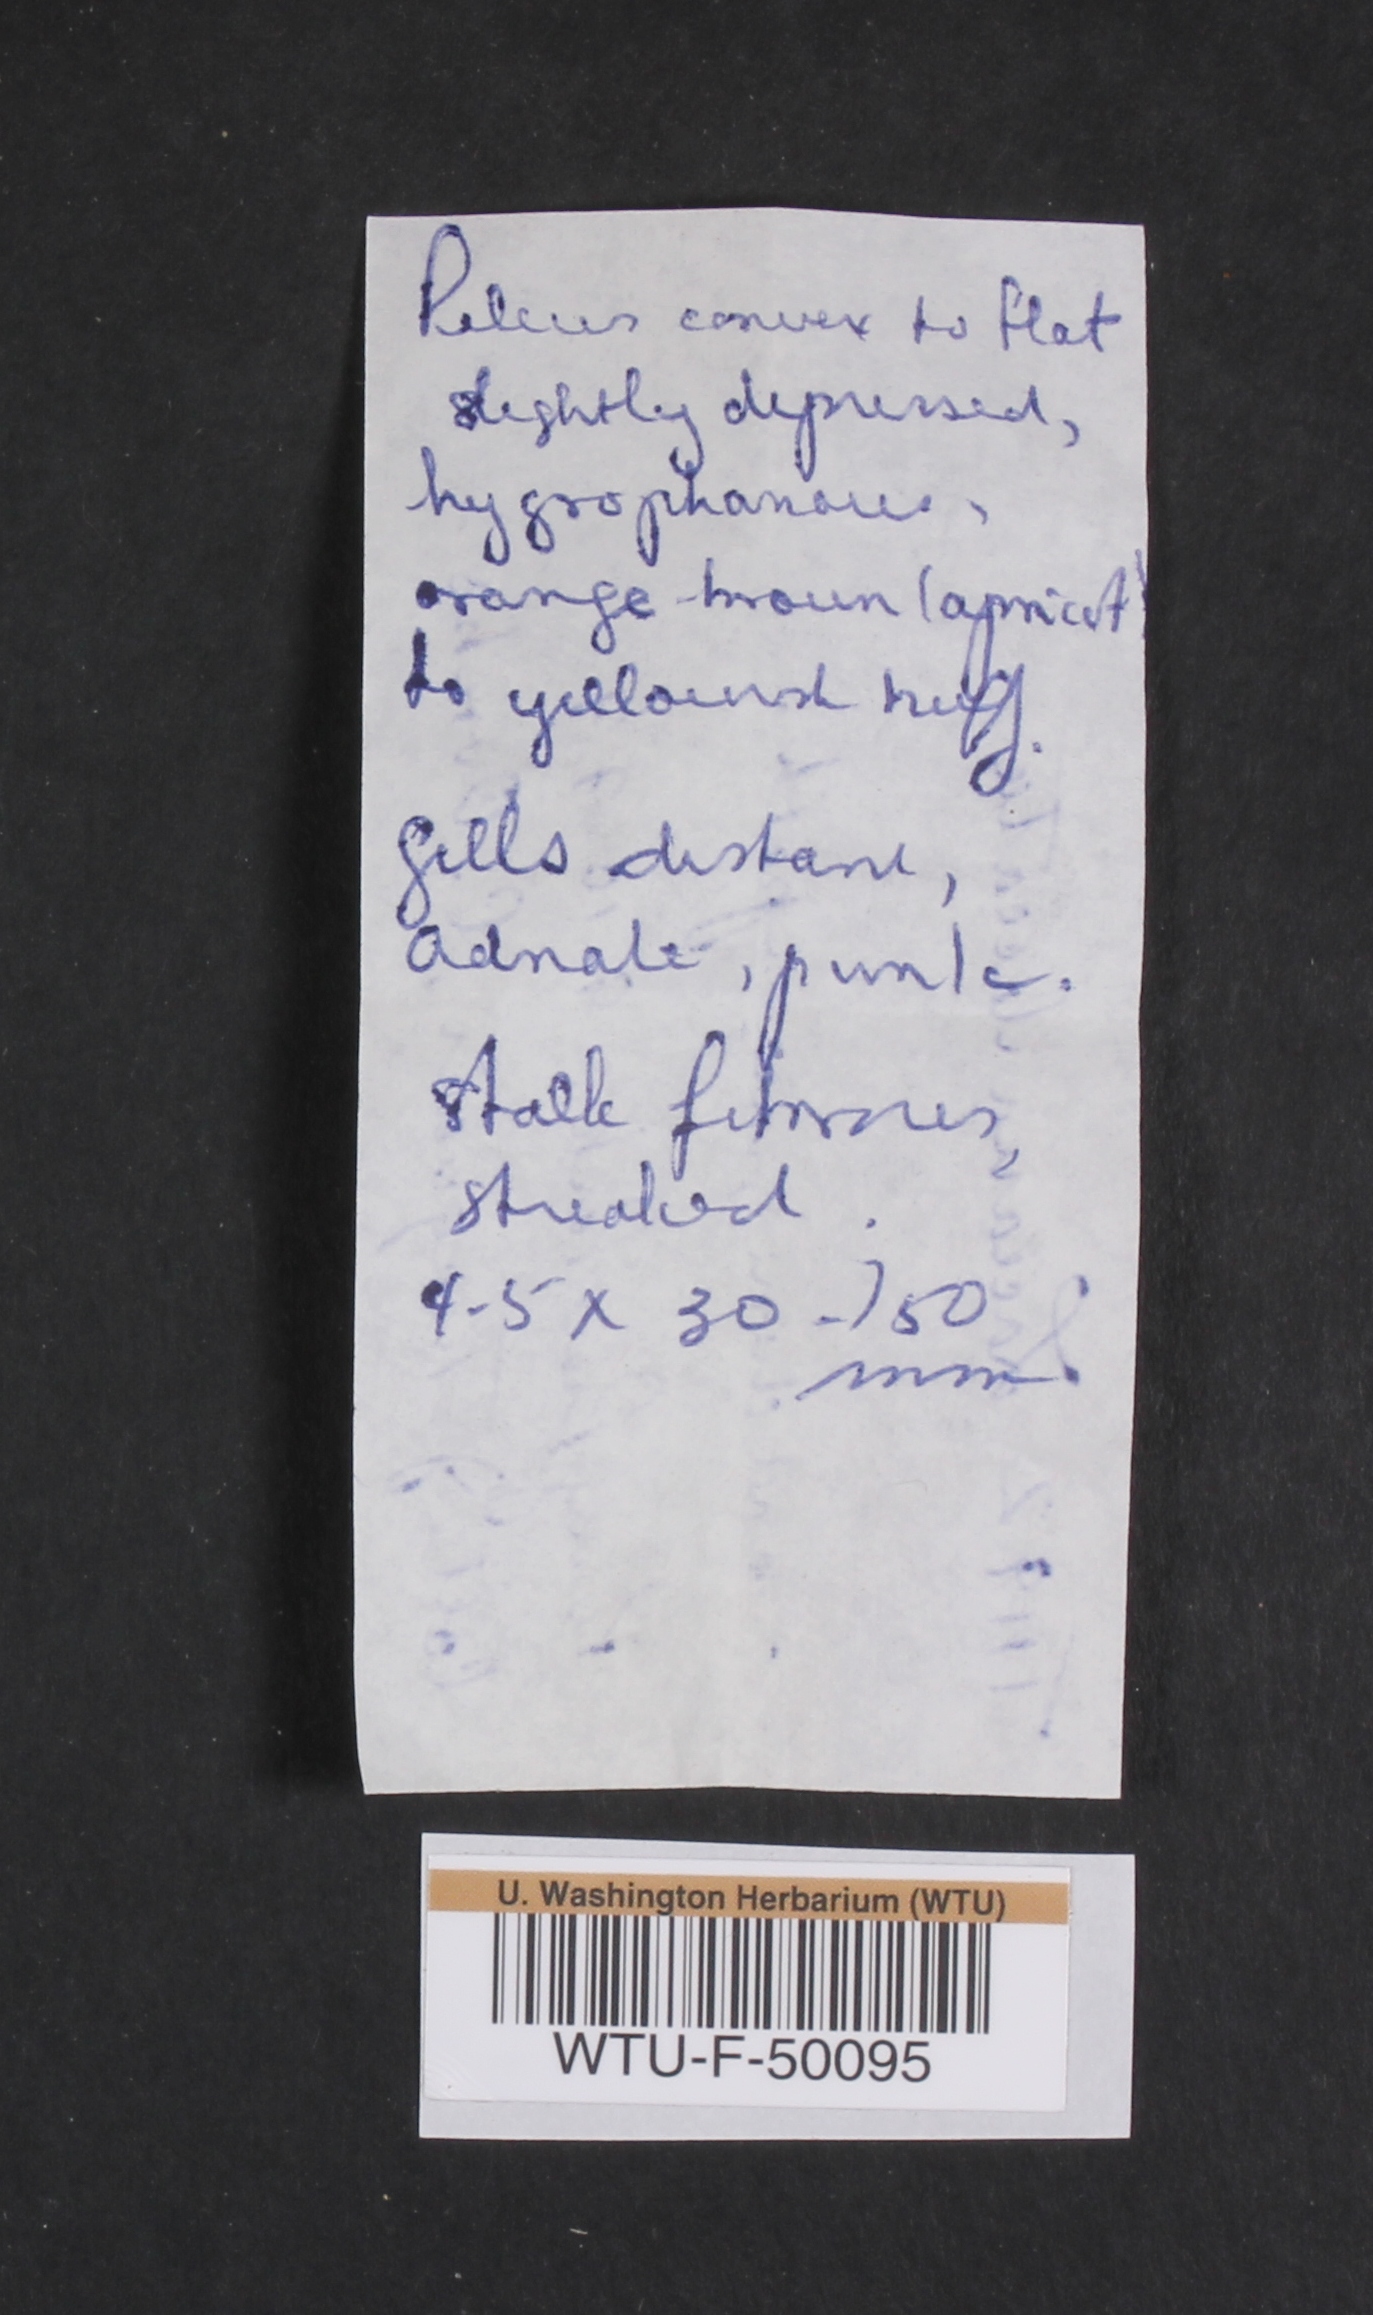 Pileus convex to flat
slightly depressed,
hygrophanous,
orange-brown (apricot)
to yellowish buff.
gills distant,
adnate, pink.
stalk fibrous,
streaked.
4-5 x 30 - 50
mm.
U. Washington Herbarium (WTU)
WTU-F-50095